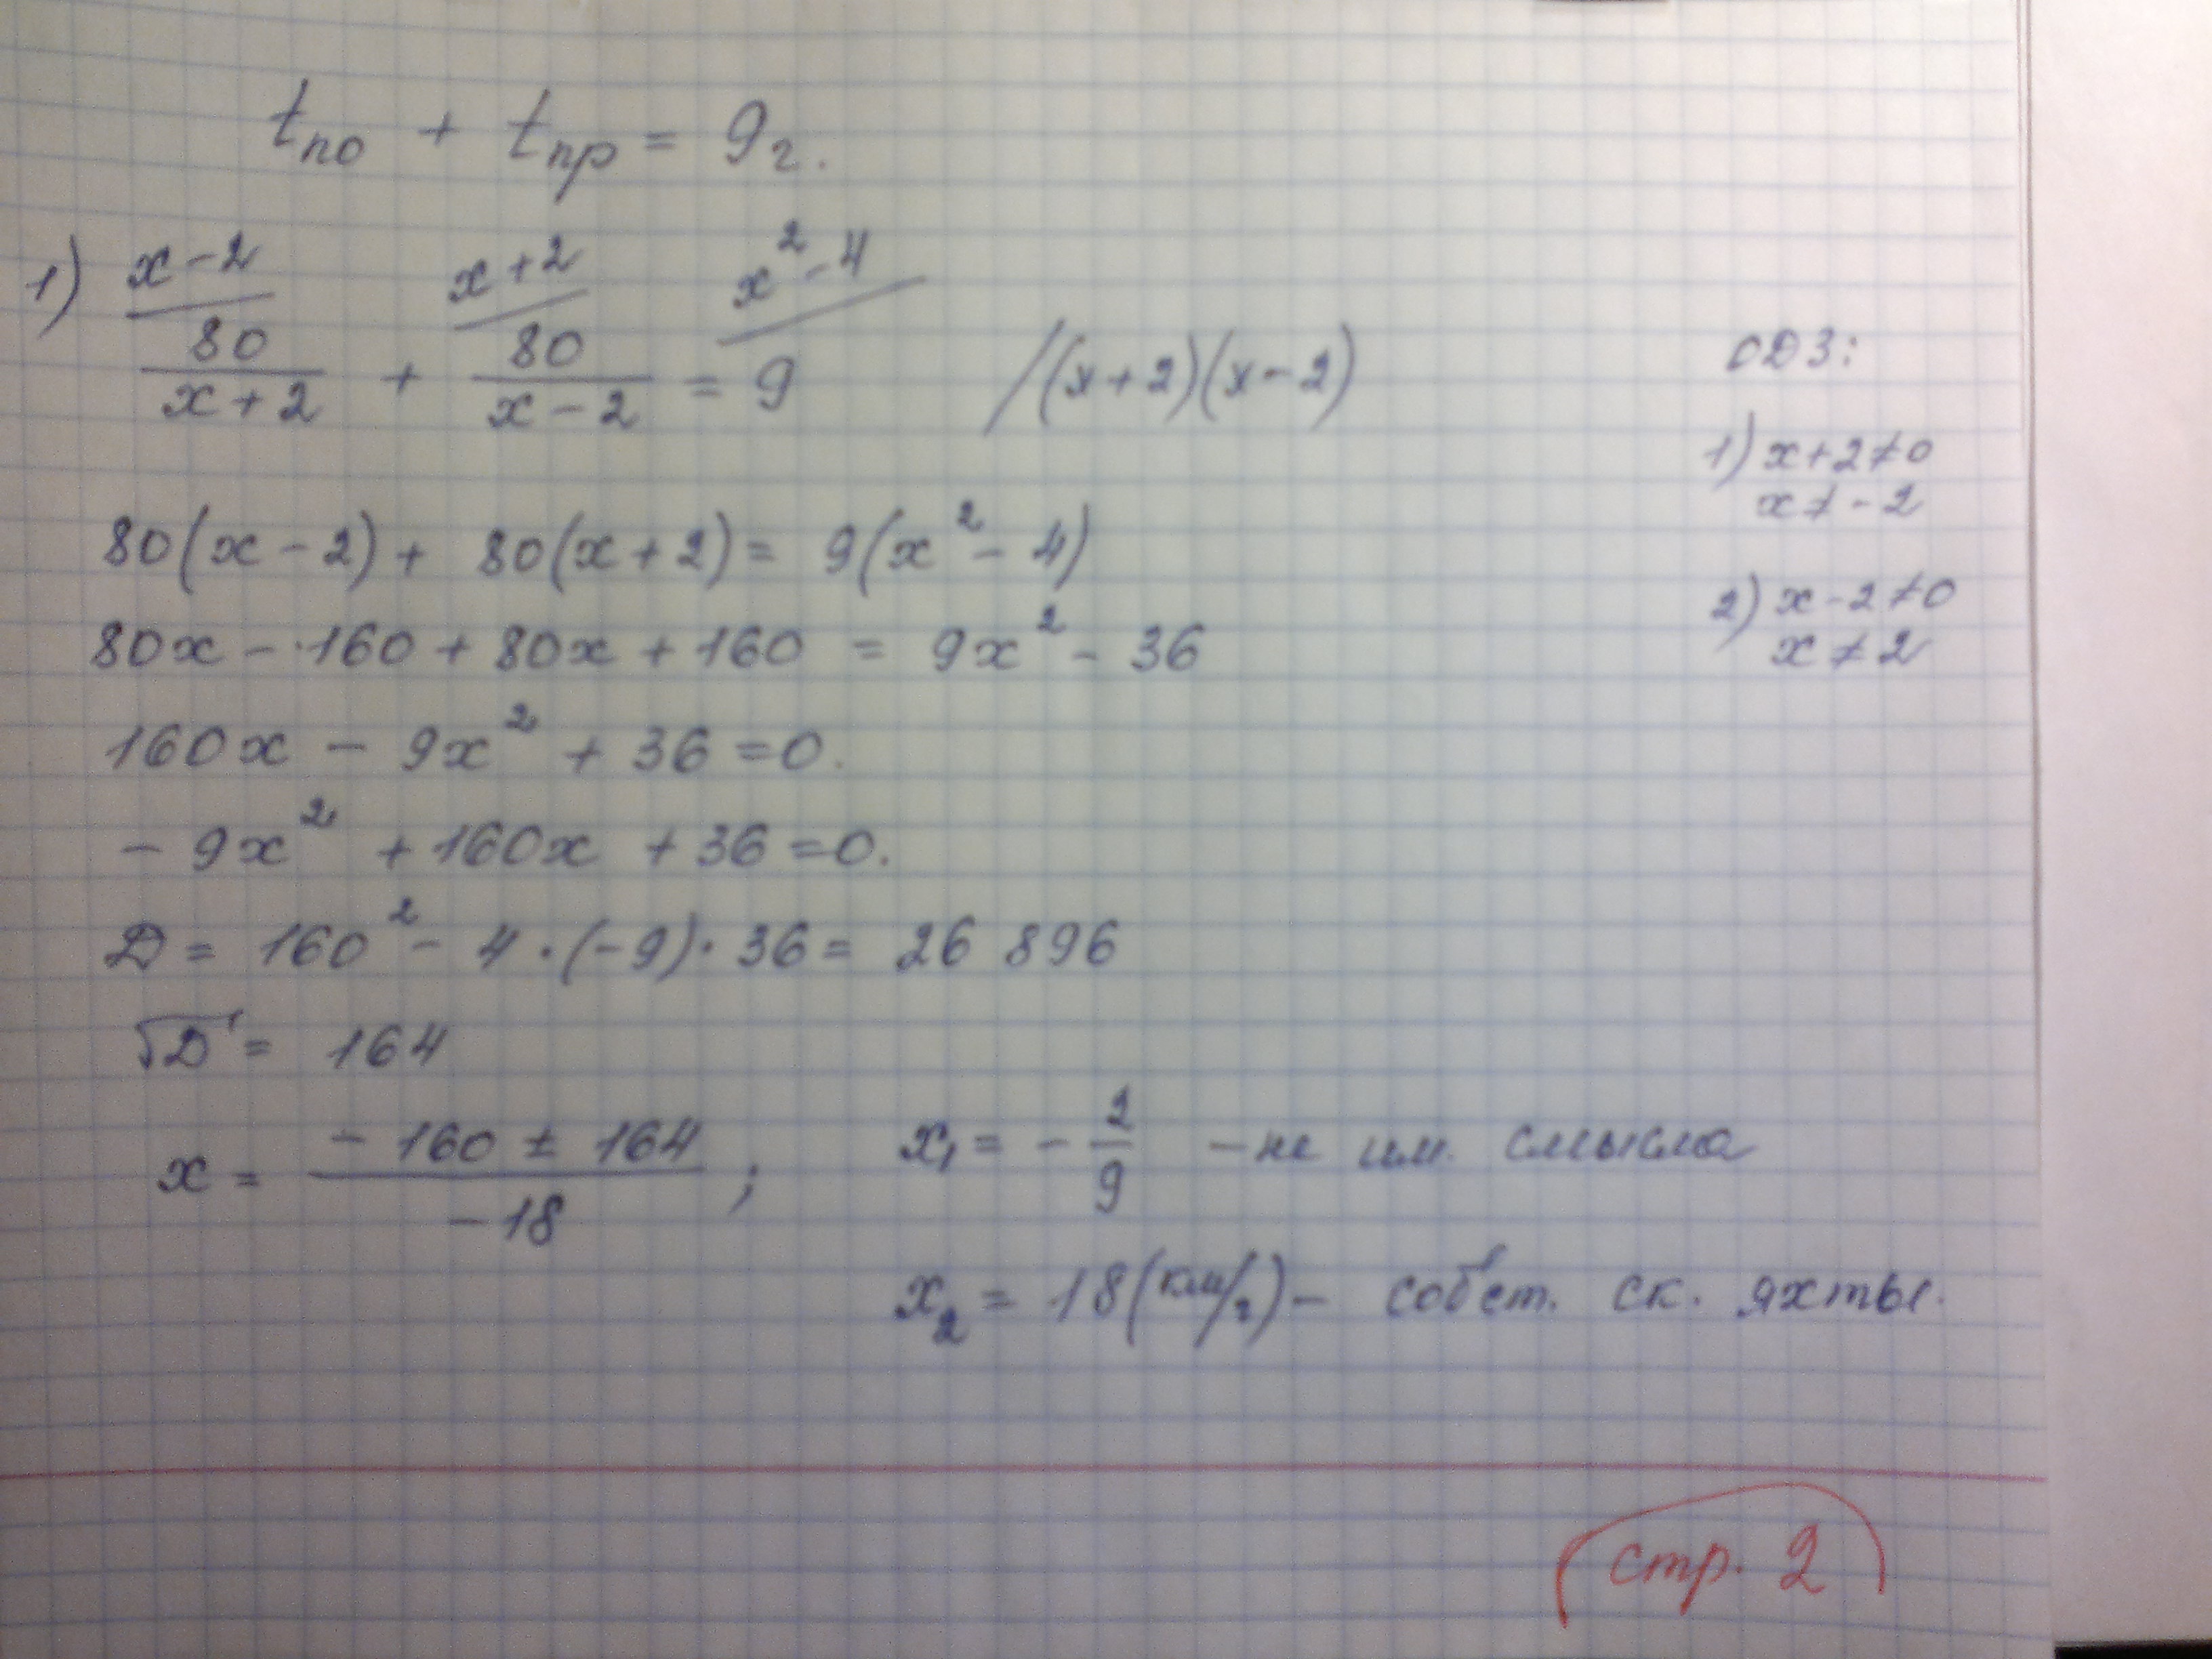 tпо + tпр = 9г.
1) x-2 x+2 x²-4
80/(x+2) + 80/(x-2) = 9 /(x+2)(x-2)
ОДЗ:
1) x+2≠0
x≠-2
2) x-2≠0
x≠2
80(x-2)+ 80(x+2)= 9(x²- 4)
80x - 160 + 80x + 160 = 9x² - 36
160x - 9x² + 36 =0.
- 9x² +160x +36 =0.
D = 160² - 4 · (-9) · 36 = 26 896
√D = 164
x = (-160 ± 164)/(-18) ; x₁ = - 2/9 - не им. смысла
x₂ = 18 (км/г) - собст. ск. яхты.
стр. 2